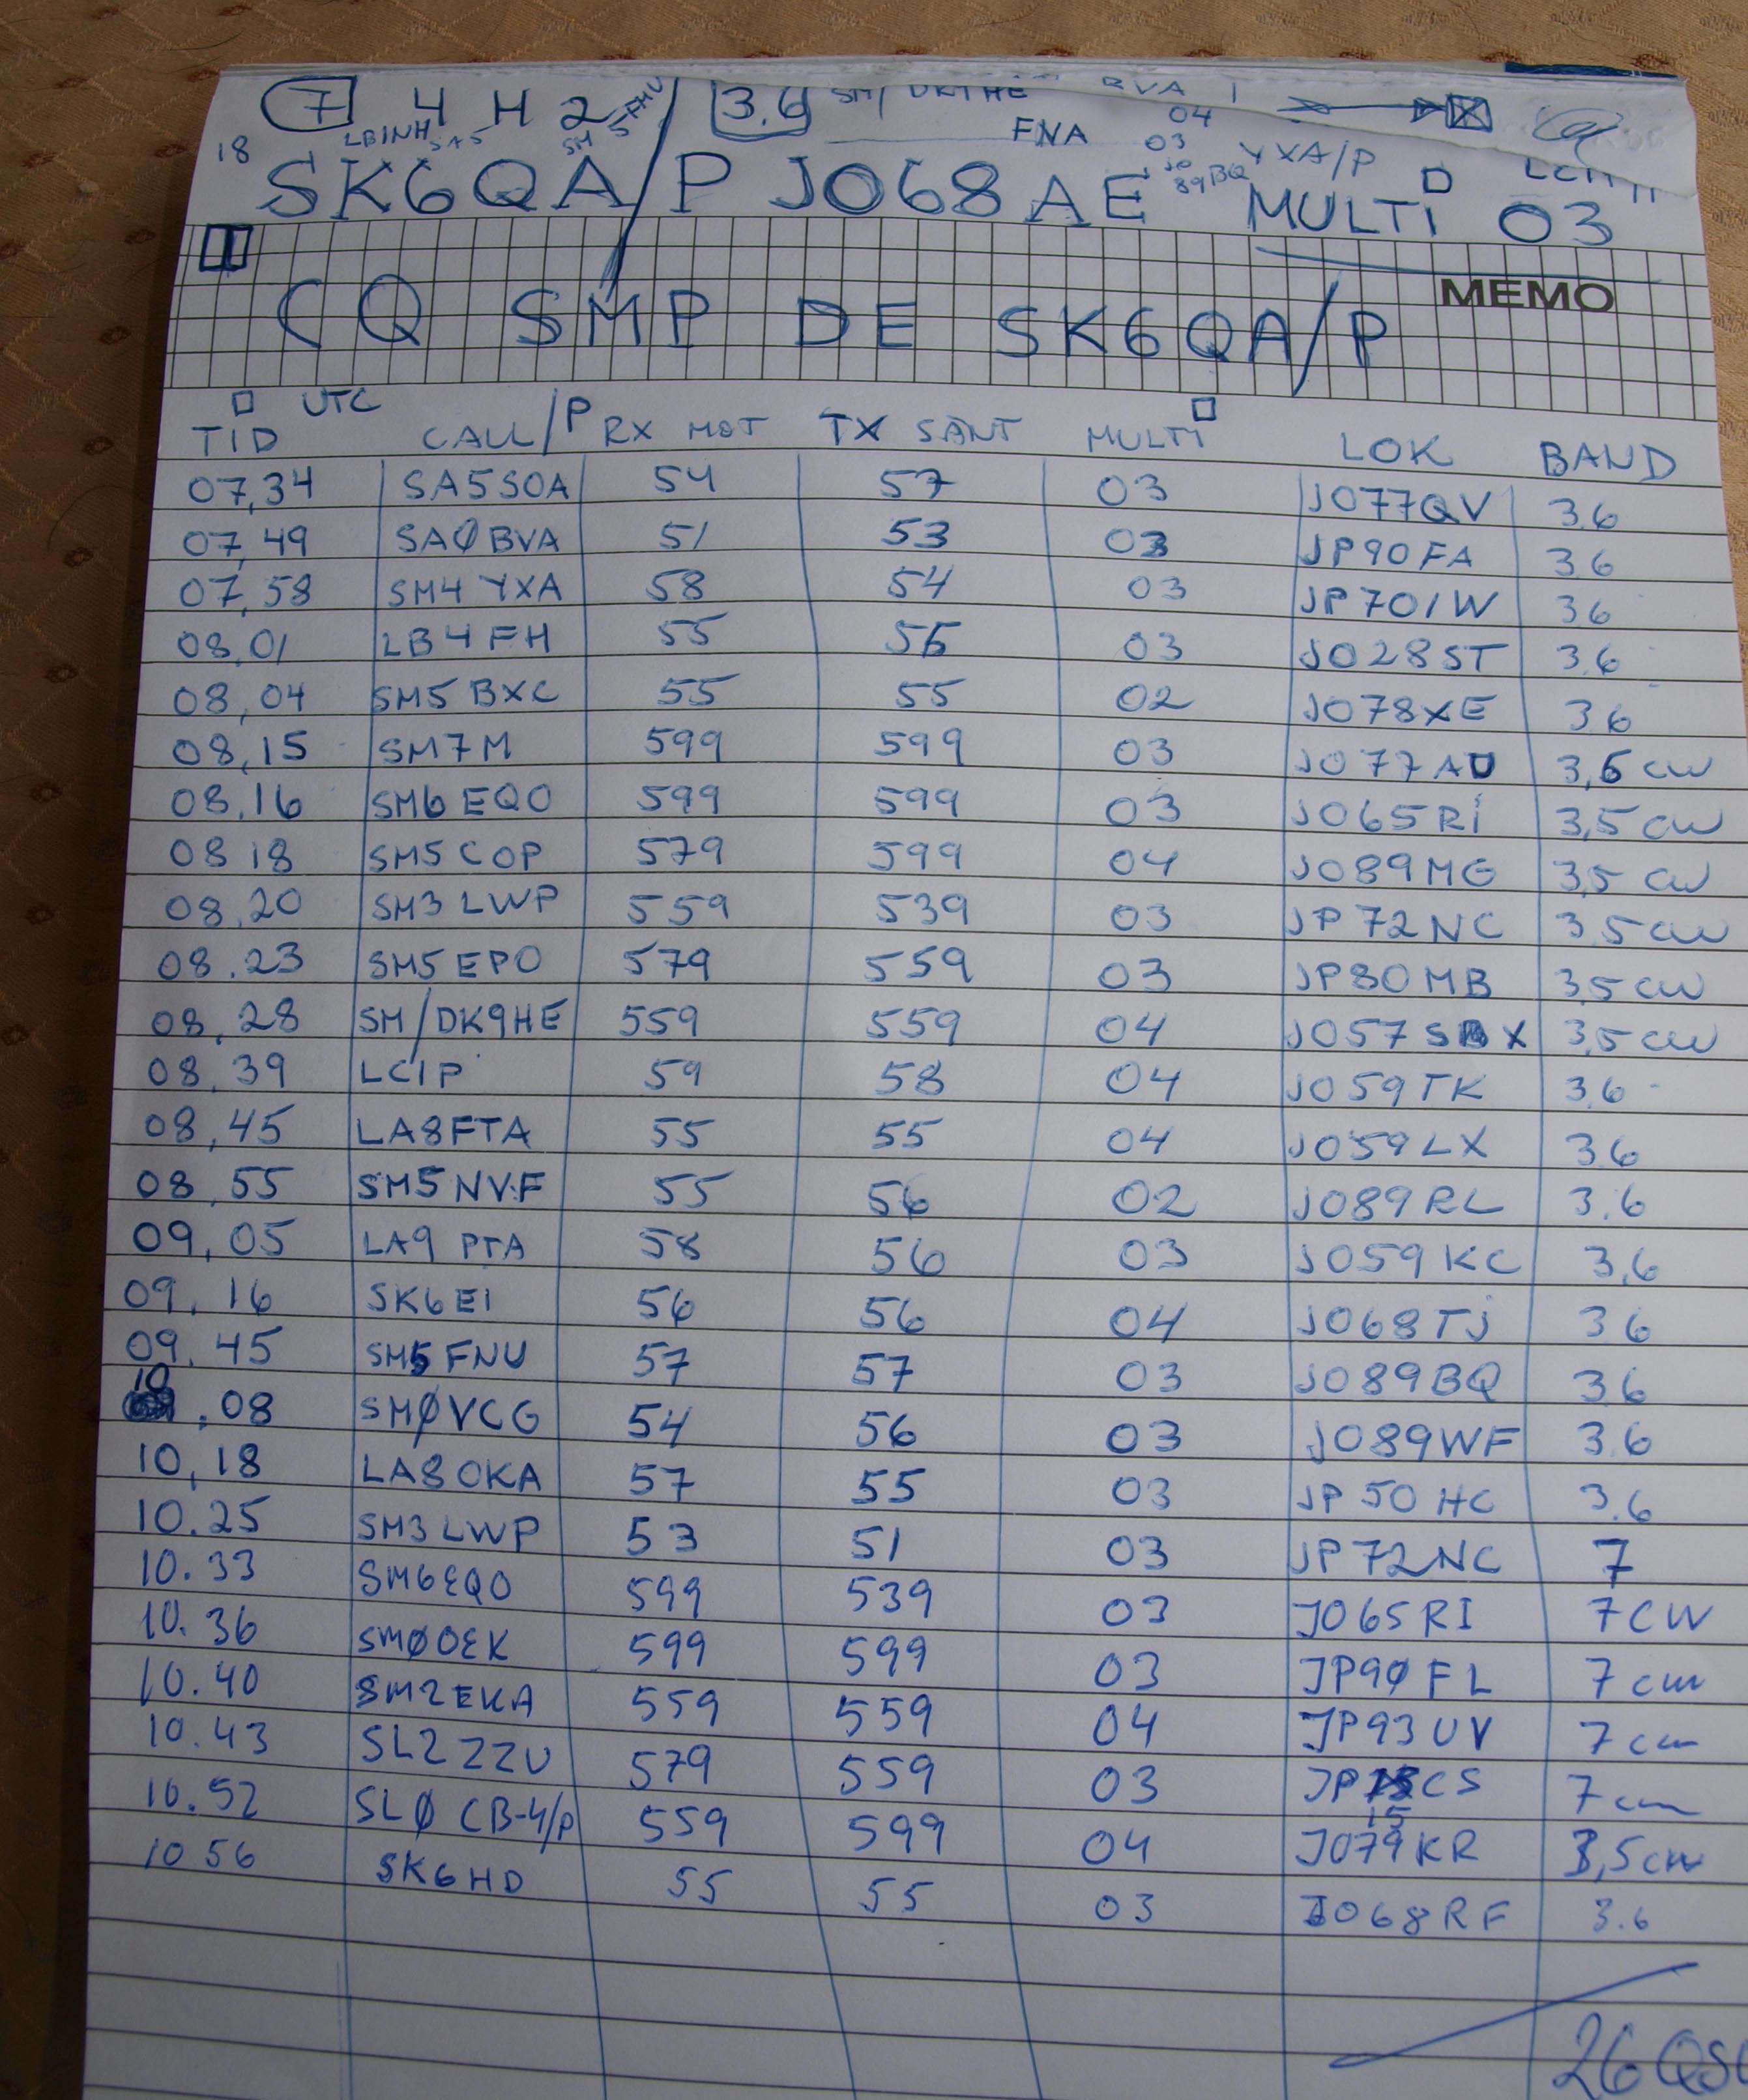 7 4 H 2 3.6 SM/DK9HE
LB1NH SA5 SM FNA 04
18 03 YXA/P
SK6QA/P JO68AE JO 89BQ MULTI 03
CQ SMP DE SK6QA/P
MEMO
TID UTC CALL/P RX MOT TX SÄNT MULTI LOK BAND
07,34 SA5SOA 54 57 03 JO77QV 3.6
07,49 SAØBVA 51 53 03 JP90FA 3.6
07,58 SM4YXA 58 54 03 JP70IW 36
08,01 LB4FH 55 55 03 JO28ST 3.6
08,04 SM5BXC 55 55 02 JO78XE 36
08,15 SM7M 599 599 03 JO77AU 3,6 CW
08.16 SM6EQO 599 599 03 JO65Ri 3,5 CW
08 18 SM5COP 579 599 04 JO89MG 3,5 CW
08.20 SM3LWP 559 539 03 JP72NC 3 5 CW
08.23 SM5EPO 579 559 03 JP80MB 3,5 CW
08,28 SM/DK9HE 559 559 04 JO57SX 3,5 CW
08.39 LC1P 59 58 04 JO59TK 3.6
08,45 LA8FTA 55 55 04 JO59LX 36
08.55 SM5NVF 55 56 02 JO89RL 3.6
09,05 LA9PTA 58 56 03 JO59KC 3.6
09.16 SK6EI 56 56 04 JO68TJ 36
09.45 SM5FNU 57 57 03 JO89BQ 36
10.08 SMØVCG 54 56 03 JO89WF 3.6
10,18 LA8OKA 57 55 03 JP50HC 3.6
10.25 SM3LWP 53 51 03 JP72NC 7
10.33 SM6EQO 599 539 03 JO65RI 7CW
10.36 SMØOEK 599 599 03 JP9ØFL 7 cw
10.40 SM2EKA 559 559 04 JP93UV 7 cw
10.43 SL2ZZU 579 559 03 JP15CS 7 cw
10.52 SLØCB-4/P 559 599 04 JO79KR 3,5cw
10 56 SK6HD 55 55 03 JO68RF 3.6
26 QSO